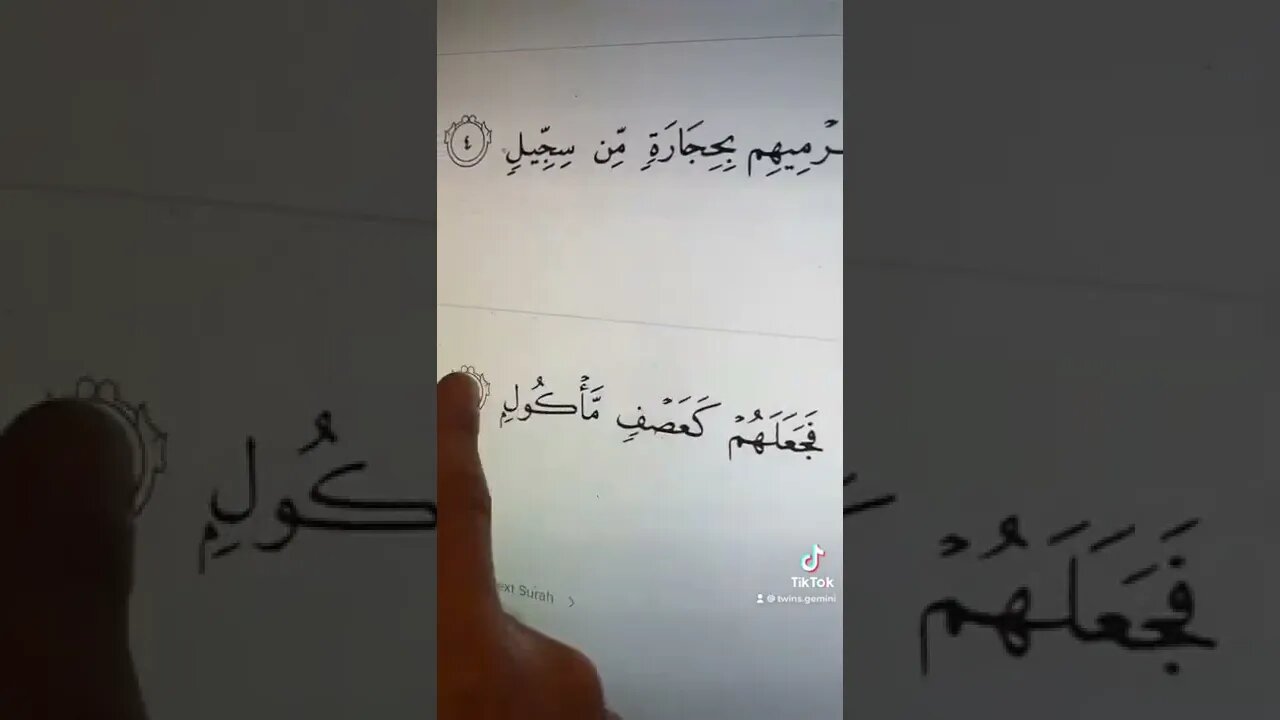 ـرْمِيهِم بِحِجَارَةٍ مِّن سِجِّيلٍ ٤
فَجَعَلَهُمْ كَعَصْفٍ مَّأْكُولٍۭ
ext Surah >
TikTok
@twins.gemini